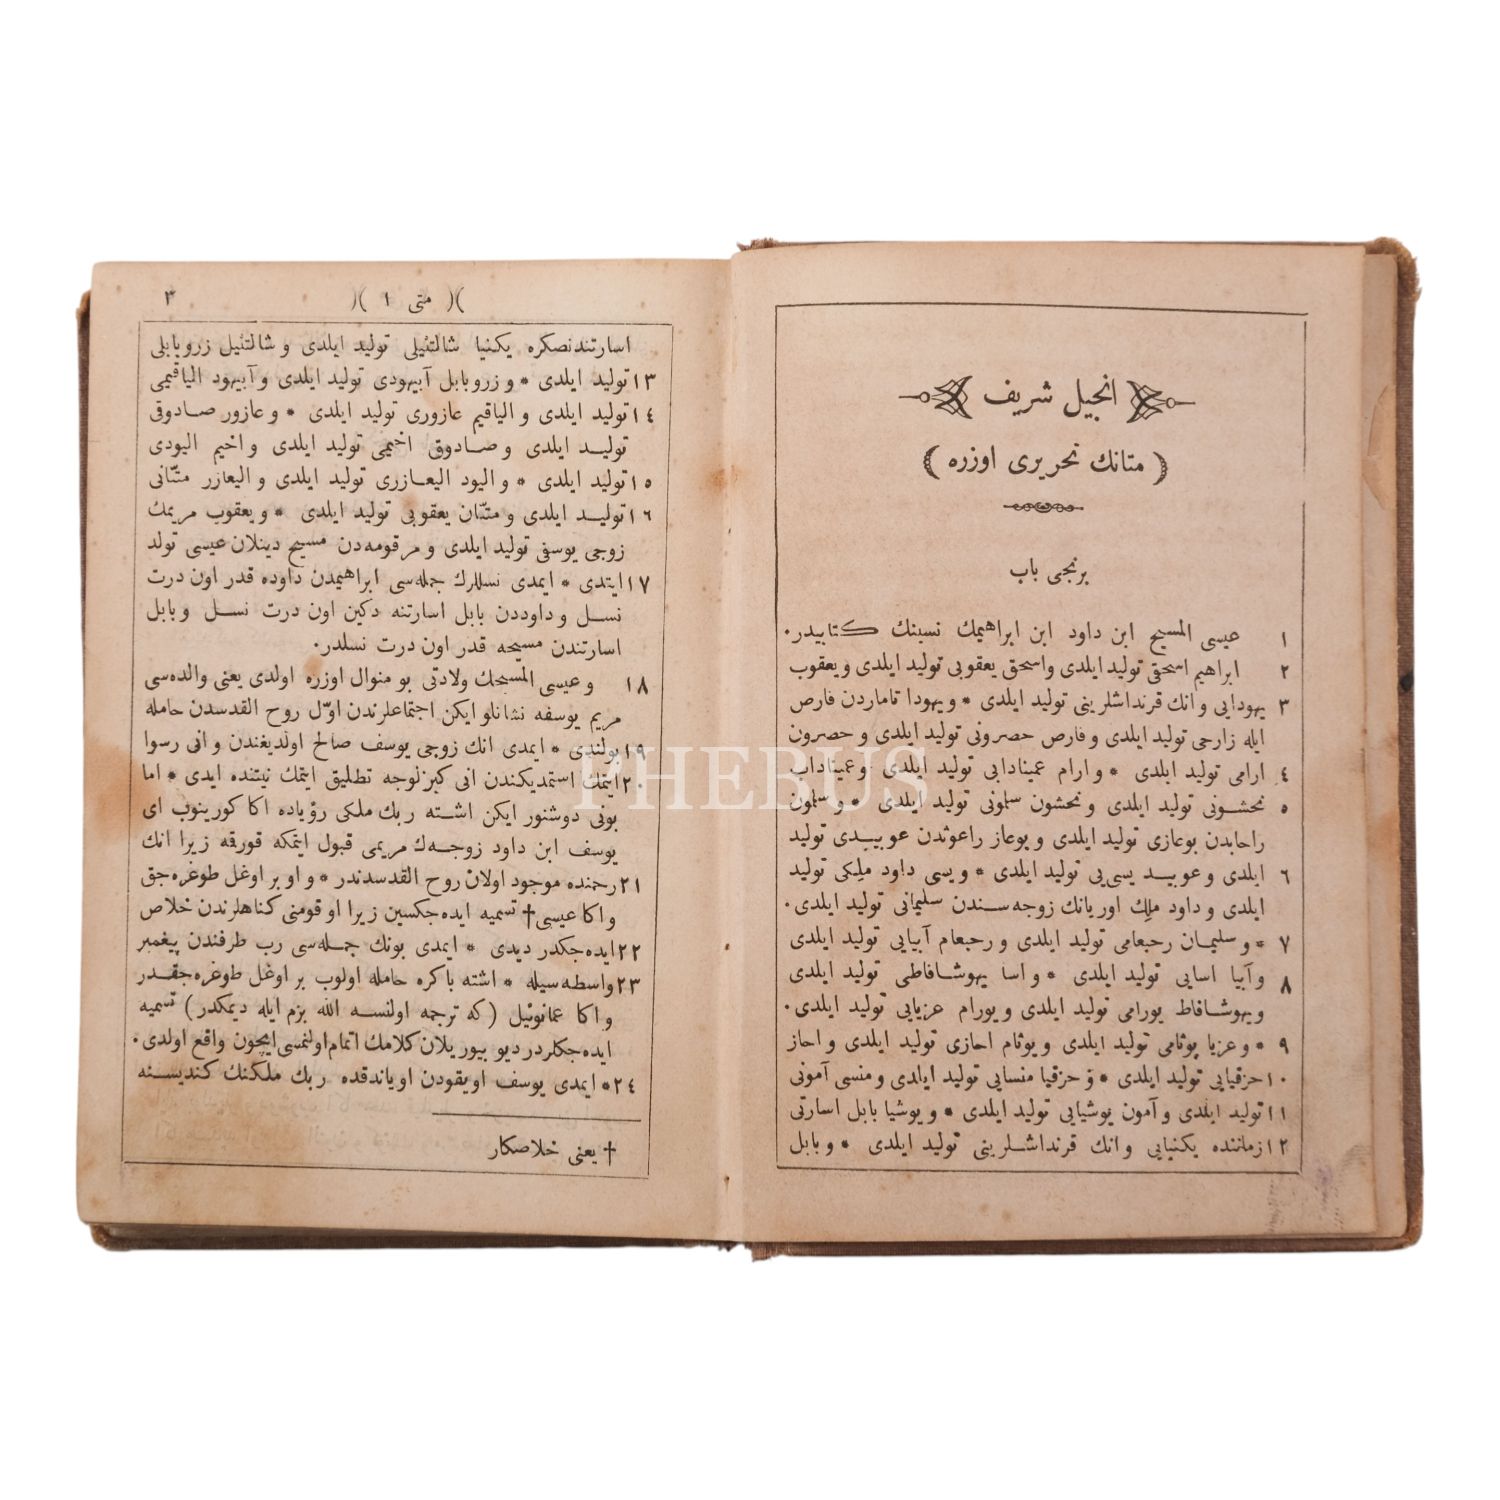 انجیل شریف
( متانك تحریری اوزره )
برنجی باب
١ عیسی المسیح ابن داود ابن ابراهیمك نسبنك كتابیدر٠
٢ ابراهیم اسحقی تولید ایلدی واسحق یعقوبی تولید ایلدی و یعقوب
٣ یهودایی و انك قرنداشلرینی تولید ایلدی * و یهودا تاماردن فارص
ایله زارحی تولید ایلدی و فارص حصرونی تولید ایلدی و حصرون
٤ ارامی تولید ایلدی * و ارام عمینادابی تولید ایلدی و عمیناداب
٥ نحشونی تولید ایلدی و نحشون سلمونی تولید ایلدی * و سلمون
راحابدن بوعازی تولید ایلدی و بوعاز راعوثدن عوبیدی تولید
٦ ایلدی و عوبید یسی‌یی تولید ایلدی * و یسی داود ملكی تولید
ایلدی و داود ملك اوریانك زوجه‌سندن سلیمانی تولید ایلدی٠
٧ * و سلیمان رحبعامی تولید ایلدی و رحبعام آبیایی تولید ایلدی
٨ و آبیا اسایی تولید ایلدی * و اسا یهوشافاطی تولید ایلدی
و یهوشافاط یورامی تولید ایلدی و یورام عزیایی تولید ایلدی٠
٩ * و عزیا یوثامی تولید ایلدی و یوثام احازی تولید ایلدی و احاز
١٠ حزقیایی تولید ایلدی * و حزقیا منسایی تولید ایلدی و منسی آمونی
١١ تولید ایلدی و آمون یوشیایی تولید ایلدی * و یوشیا بابل اسارتی
١٢ زماننده یكنیایی و انك قرنداشلرینی تولید ایلدی * و بابل
)( متی ١ )( ٣
اسارتندنصكره یكنیا شالتئیلی تولید ایلدی و شالتئیل زروبابلی
١٣ تولید ایلدی * و زروبابل آبیهودی تولید ایلدی و آبیهود الیاقیمی
١٤ تولید ایلدی و الیاقیم عازوری تولید ایلدی * و عازور صادوقی
تولید ایلدی و صادوق اخیمی تولید ایلدی و اخیم الیودی
١٥ تولید ایلدی * و الیود الیعازری تولید ایلدی و الیعازر متّانی
١٦ تولید ایلدی و متّان یعقوبی تولید ایلدی * و یعقوب مریمك
زوجی یوسفی تولید ایلدی و مرقومه‌دن مسیح دینلان عیسی تولد
١٧ ایتدی * ایمدی نسللرك جمله‌سی ابراهیمدن داوده قدر اون درت
نسل و داوددن بابل اسارتنه دكین اون درت نسل و بابل
اسارتندن مسیحه قدر اون درت نسلدر٠
١٨ و عیسی المسیحك ولادتی بو منوال اوزره اولدی یعنی والده‌سی
مریم یوسفه نشانلو ایكن اجتماعلرندن اوّل روح القدسدن حامله
١٩ بولندی * ایمدی انك زوجی یوسف صالح اولدیغندن و انی رسوا
٢٠ ایتمك استمدیكندن انی كیزلوجه تطلیق ایتمك نیتنده ایدی * اما
بونی دوشنور ایكن اشته ربك ملكی رؤیاده اكا كورینوب ای
یوسف ابن داود زوجه‌ك مریمی قبول ایتمكه قورقمه زیرا انك
٢١ رحمنده موجود اولان روح القدسدندر * و او بر اوغل طوغره‌جق
و اكا عیسی† تسمیه ایده‌جكسین زیرا او قومنی كناهلرندن خلاص
٢٢ ایده‌جكدر دیدی * ایمدی بونك جمله‌سی رب طرفندن پیغمبر
٢٣ واسطه‌سیله * اشته باكره حامله اولوب بر اوغل طوغره‌جقدر
و اكا عمانوئیل (كه ترجمه اولنسه الله بزم ایله دیمكدر) تسمیه
ایده‌جكلردر دیو بیوریلان كلامك اتمام اولنمسی ایچون واقع اولدی٠
٢٤ * ایمدی یوسف اویقودن اویاندقده ربك ملكنك كندیسنه
† یعنی خلاصكار
PHEBUS